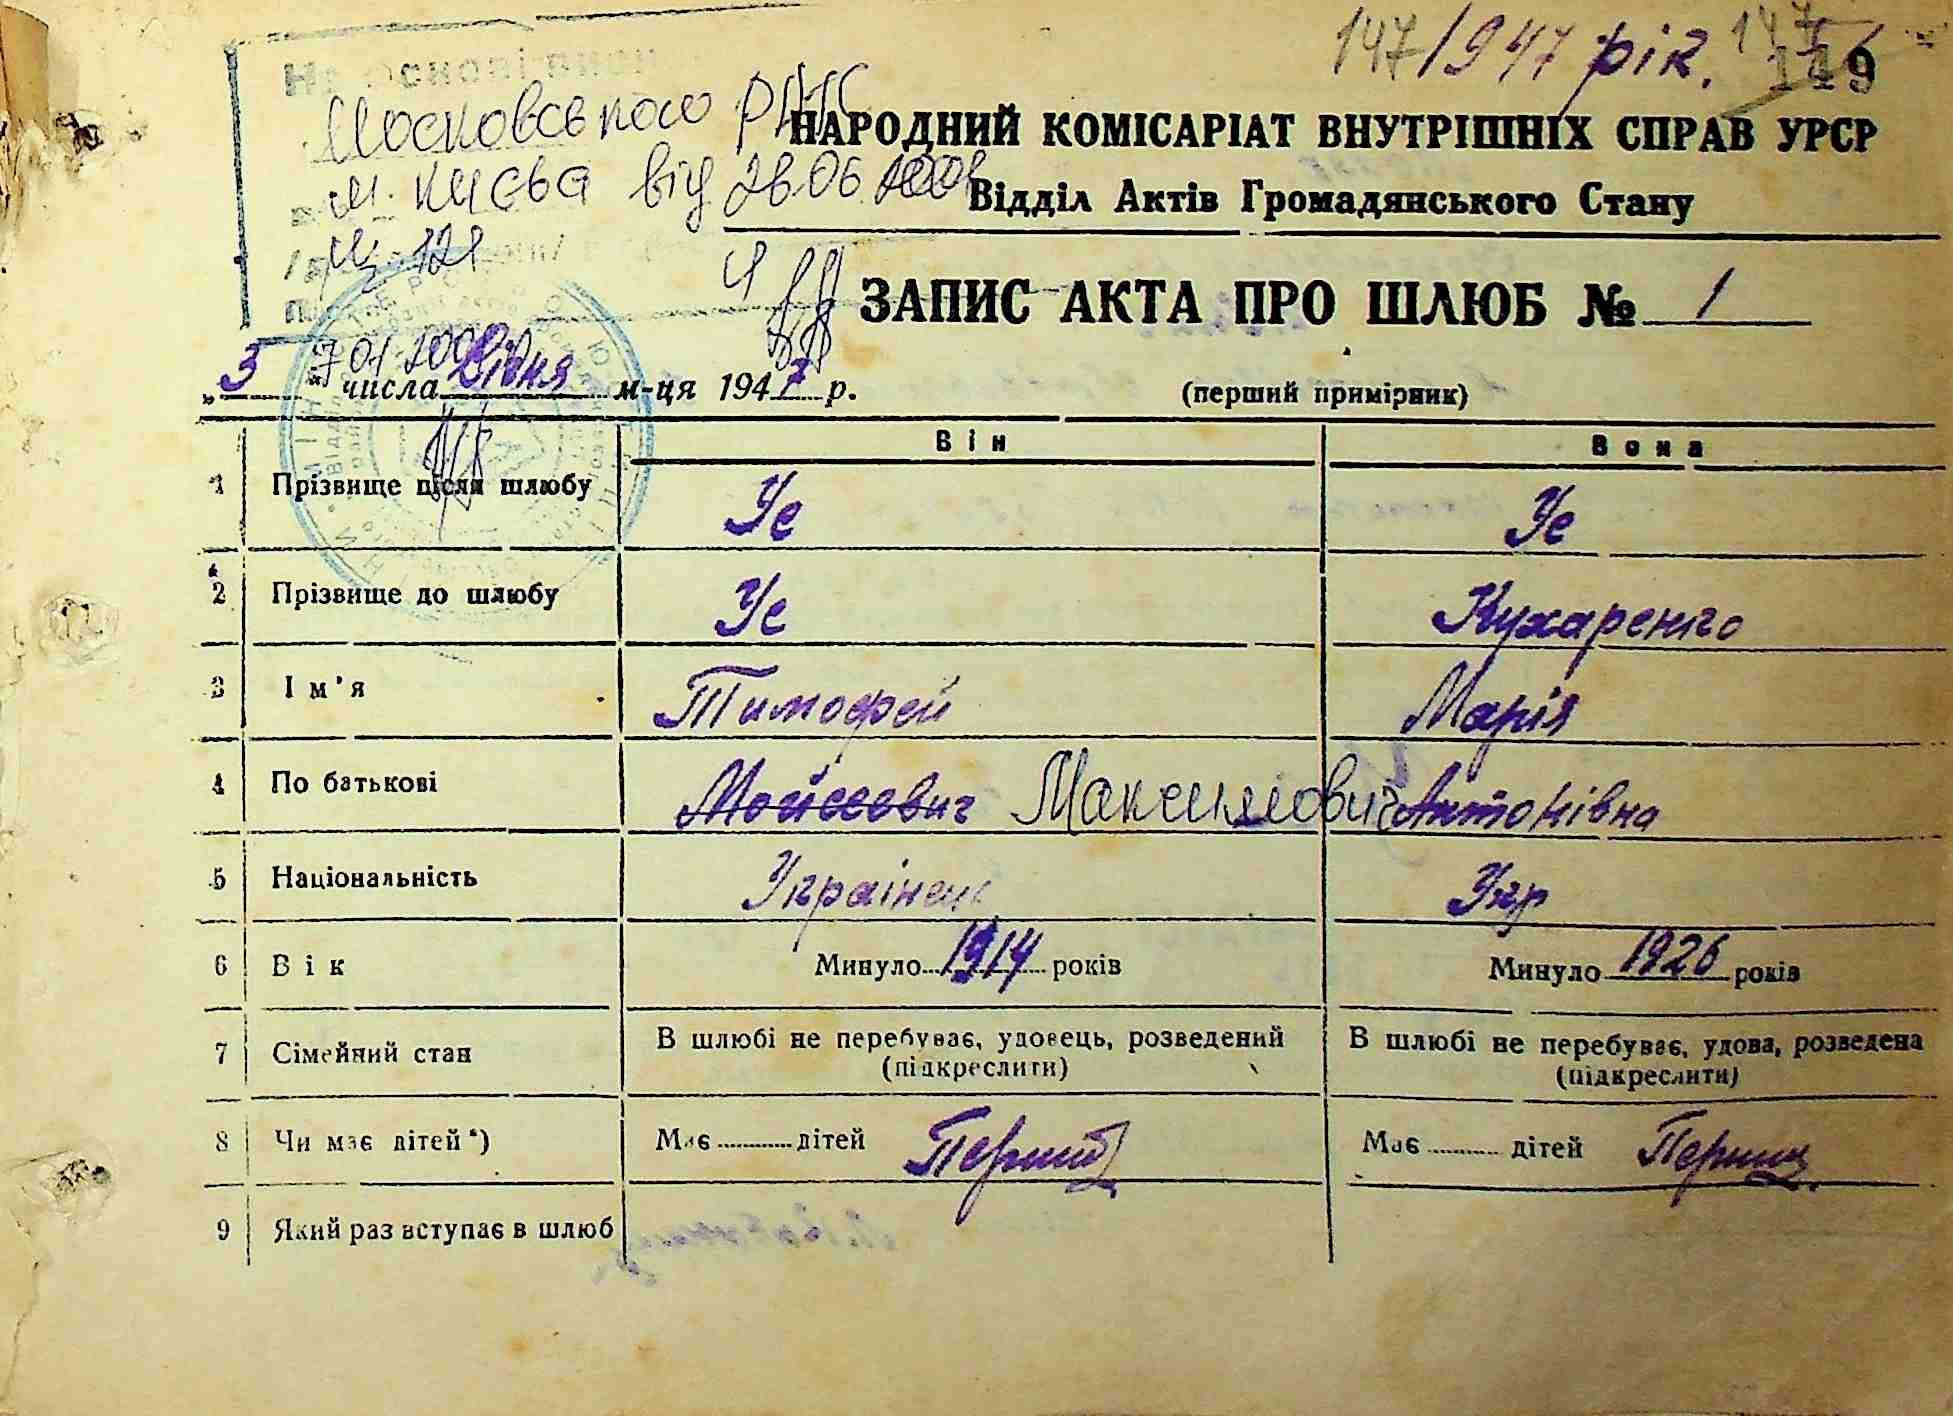 147 1947 рік. 147
149
Московського РАГС
м. Києва від 28.06.2001
НАРОДНИЙ КОМІСАРІАТ ВНУТРІШНІХ СПРАВ УРСР
Відділ Актів Громадянського Стану
ЗАПИС АКТА ПРО ШЛЮБ № 1
„3 числа Січня м-ця 1947 р.
(перший примірник)
Він Вона
1 Прізвище після шлюбу Ус Ус
2 Прізвище до шлюбу Ус Кухаренко
3 Ім'я Тимофей Марія
4 По батькові Мойсеевич Максимович Антонівна
5 Національність Українець Укр
6 Вік Минуло 1914 років Минуло 1926 років
7 Сімейний стан В шлюбі не перебуває, удовець, розведений В шлюбі не перебуває, удова, розведена
(підкреслити) (підкреслити)
8 Чи має дітей*) Має дітей Перший Має дітей Перший
9 Який раз вступає в шлюб